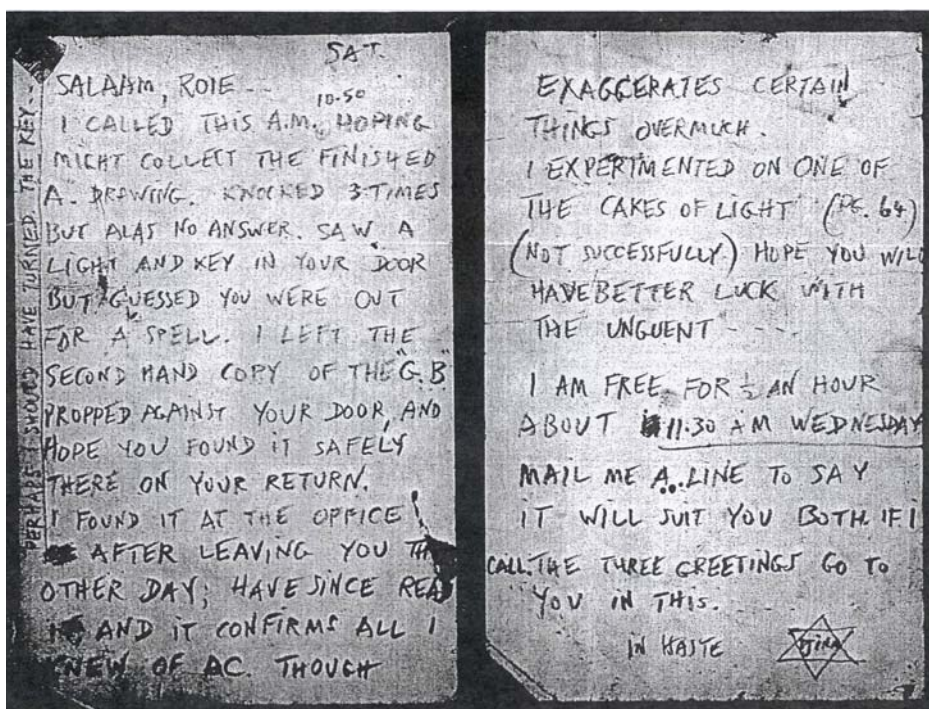 SAT.
SALAAM, ROIE --
10-50
I CALLED THIS A.M. HOPING
MIGHT COLLECT THE FINISHED
A. DRAWING. KNOCKED 3-TIMES
BUT ALAS NO ANSWER. SAW A
LIGHT AND KEY IN YOUR DOOR
BUT GUESSED YOU WERE OUT
FOR A SPELL. I LEFT THE
SECOND HAND COPY OF THE "G.B"
PROPPED AGAINST YOUR DOOR, AND
HOPE YOU FOUND IT SAFELY
THERE ON YOUR RETURN.
I FOUND IT AT THE OFFICE
AFTER LEAVING YOU
OTHER DAY; HAVE SINCE REA
AND IT CONFIRMS ALL I
KNEW OF AC. THOUGH
PERHAPS I SHOULD HAVE TURNED THE KEY--
EXAGGERATES CERTAIN
THINGS OVERMUCH.
I EXPERIMENTED ON ONE OF
THE CAKES OF LIGHT (PG. 64)
(NOT SUCCESSFULLY.) HOPE YOU WILL
HAVE BETTER LUCK WITH
THE UNGUENT ----.
I AM FREE FOR ½ AN HOUR
ABOUT 11:30 AM WEDNESDAY
MAIL ME A..LINE TO SAY
IT WILL SUIT YOU BOTH IF I
CALL. THE THREE GREETINGS GO TO
YOU IN THIS.
IN HASTE